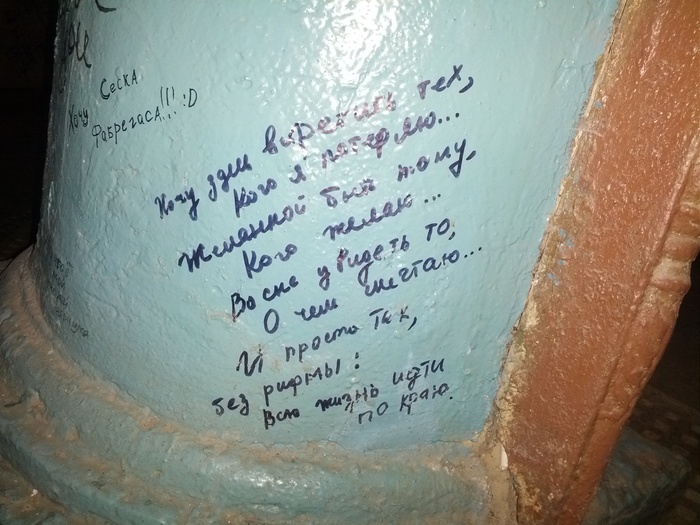 Хочу Сеска
Фабрегаса!!! :D
Хочу здесь встретить тех,
Кого я потеряю...
Желанной быть тому,
Кого желаю...
Во сне увидеть то,
О чем мечтаю...
И просто так,
без рифмы:
Всю жизнь идти
по краю.